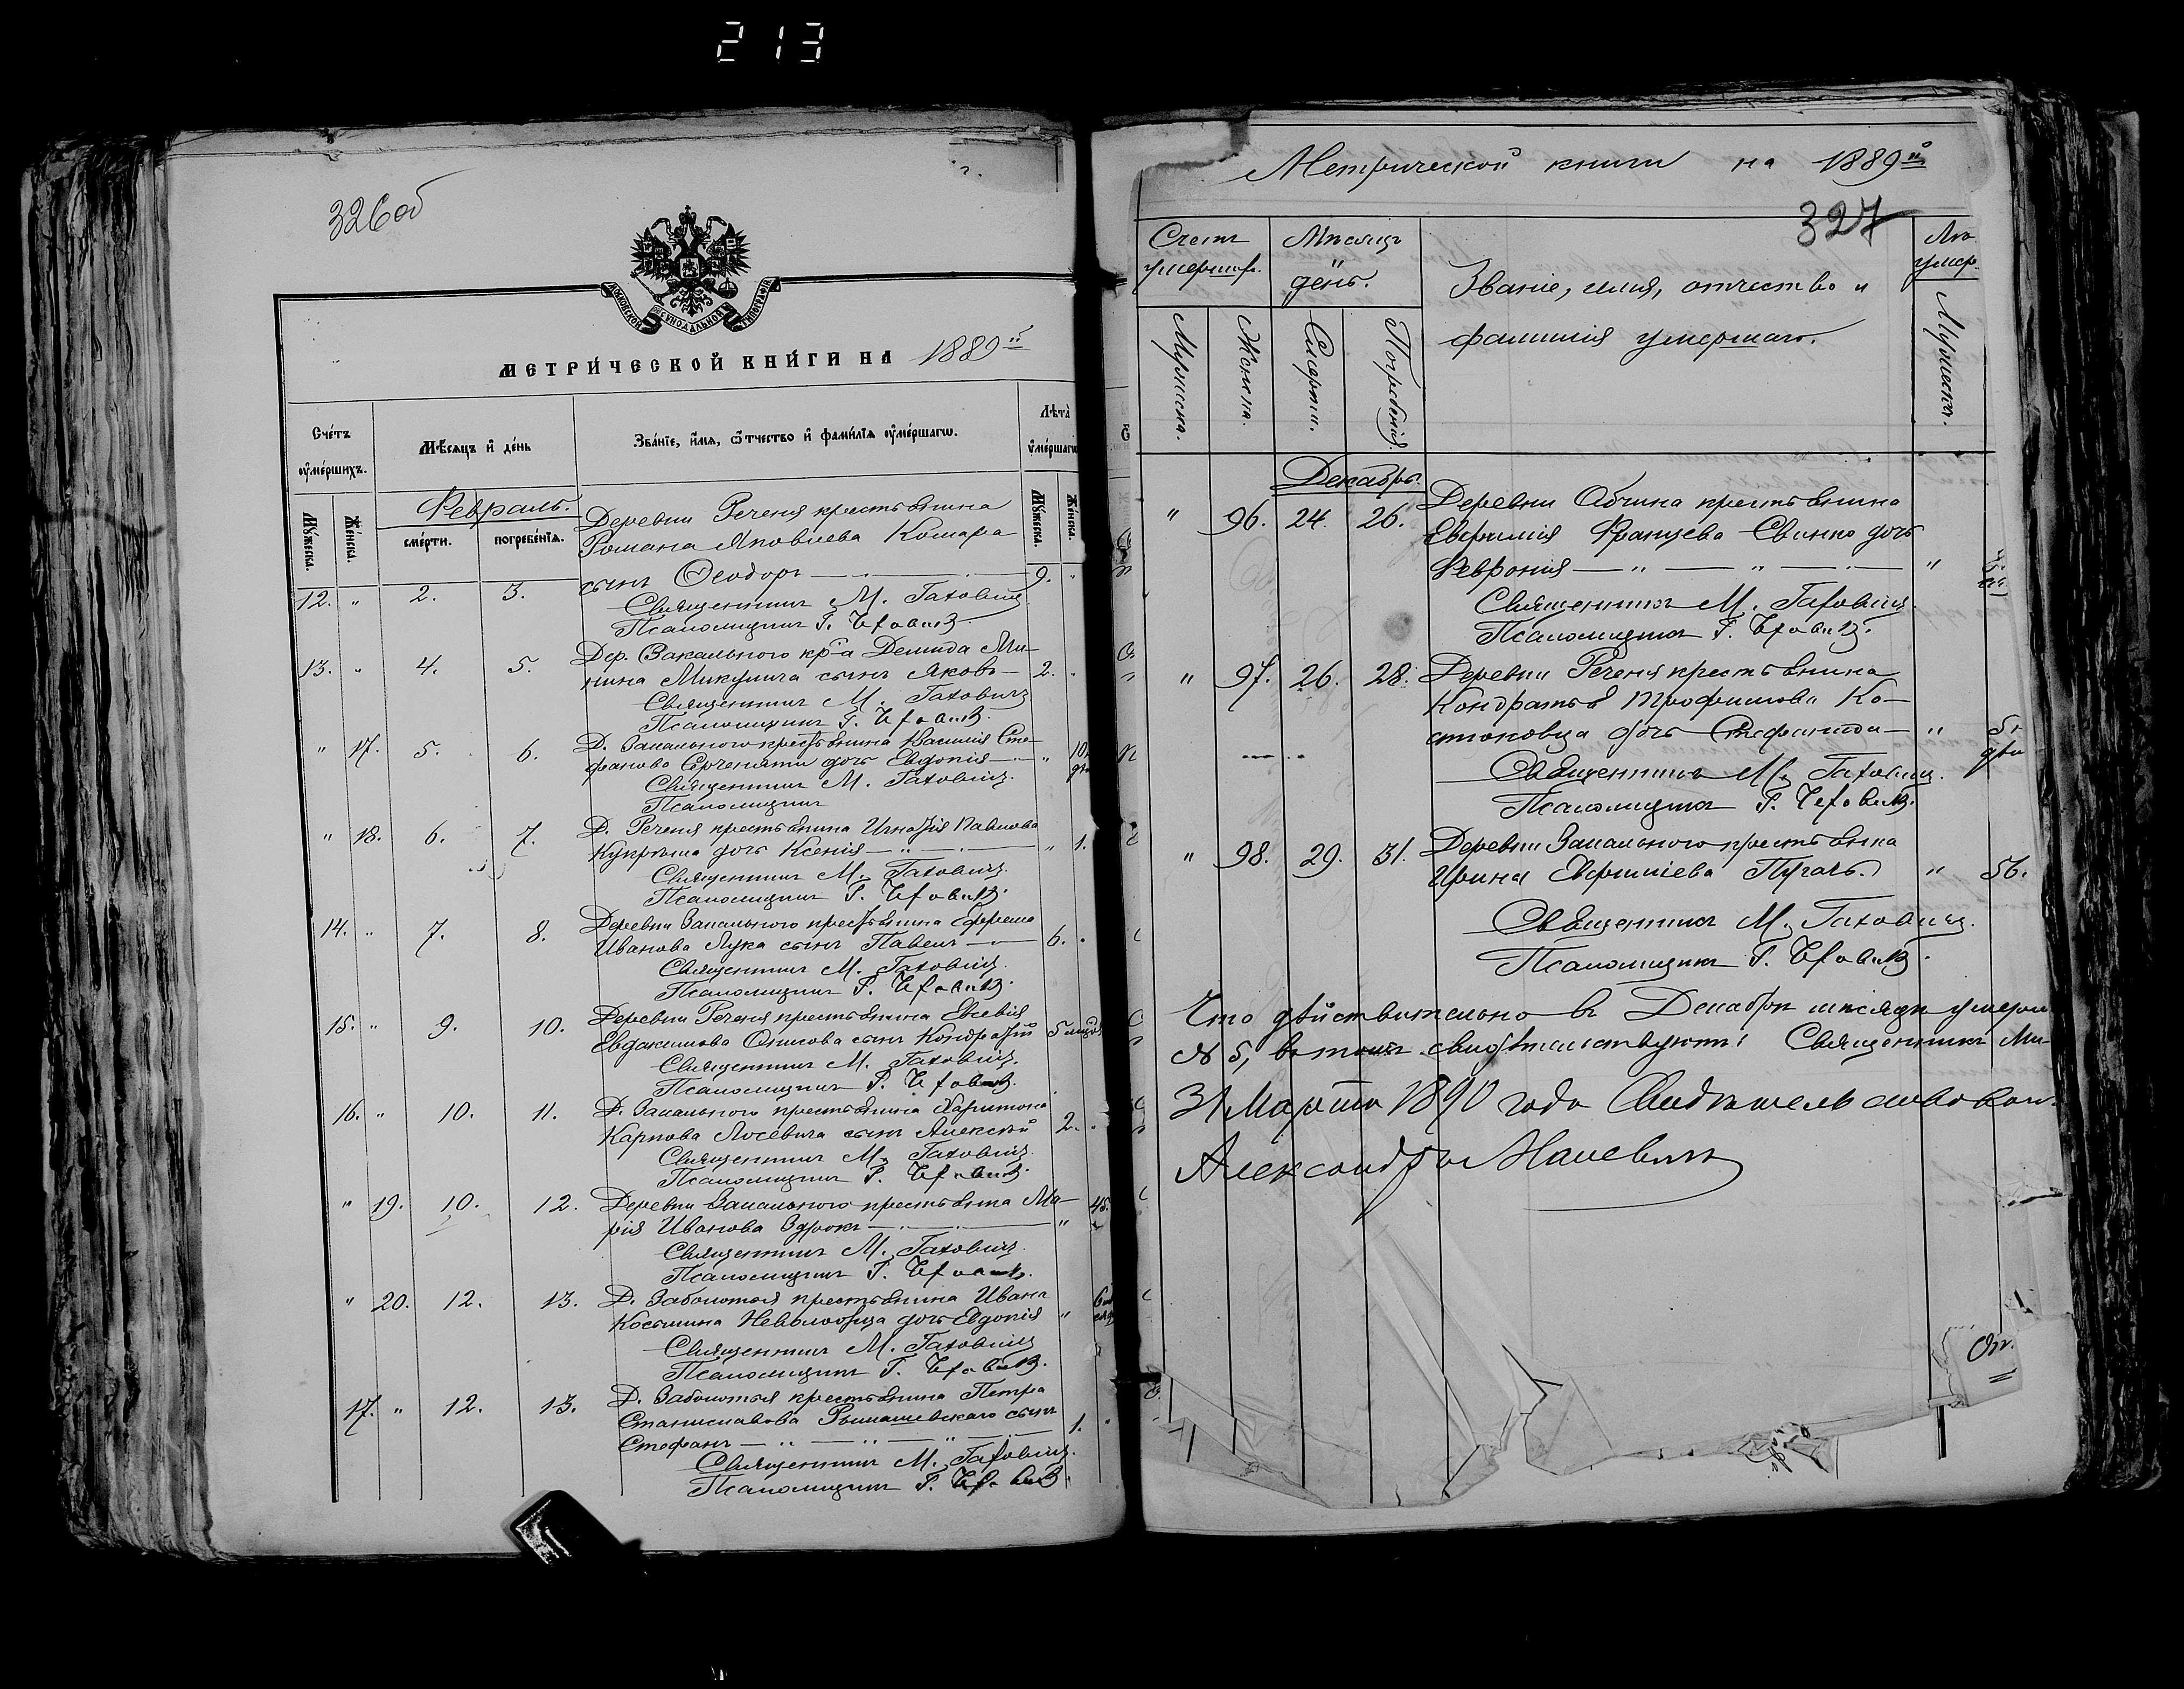 213
326об
МОСКОВСКОЙ СѴНОДАЛЬНОЙ ТИПОГРАФІИ
МЕТРИ́ЧЕСКОЙ КНИ́ГИ НА 1889й
Сче́тъ ѹ҆ме́ршихъ.
Мѣ́сяцъ и҆ де́нь
Зва́нїе, и҆́мя, ѻ҆́тчество и҆ фами́лїя ѹ҆ме́ршагѡ.
Лѣ́та ѹ҆ме́ршагѡ
Му́жеска.
Же́нска.
Февраль.
сме́рти.
погребе́нїя.
Му́жеска.
Же́нска.
Деревни Реченя крестьянина
Романа Яковлева Комара
12. " 2. 3. сынъ Ѳеодоръ 9. "
Священникъ М. Гахович
Псаломщикъ
13. " 4. 5. Дер. Закального кр-а Демида Ми-
нина Микулича сынъ Яковъ 2. "
Священникъ М. Гаховичъ
Псаломщикъ
" 17. 5. 6. Д. Закального крестьянина Василія Сте-
фанова дочь Евдокія " 10
Священникъ М. Гахович.
Псаломщикъ
" 18. 6. 7. Д. Реченя крестьянина Игнатія Павлова
дочь Ксенія " 1.
Священникъ М. Гахович.
Псаломщикъ
14. " 7. 8. Деревни Закального крестьянина Ефрема
Иванова Лука сынъ Павелъ 6. "
Священникъ М. Гахович.
Псаломщикъ
15. " 9. 10. Деревни Реченя крестьянина Евсевія
Евдокимова сынъ Кондратій 5
Священникъ М. Гахович.
Псаломщикъ
16. " 10. 11. Д. Закального крестьянина Харитона
Карпова Лосевича сынъ Алексѣй 2. "
Священникъ М. Гахович.
Псаломщикъ
" 19. 10. 12. Деревни Закального крестьянка Ма-
рія Иванова " 45.
Священникъ М. Гахович.
Псаломщикъ
" 20. 12. 13. Д. Заболотья крестьянина Ивана
Косьмина дочь Евдокія " 6
Священникъ М. Гахович
Псаломщикъ
17. " 12. 13. Д. Заболотья крестьянина Петра
Станиславова сынъ
Стефанъ 1. "
Священникъ М. Гахович.
Псаломщикъ
Метрической книги на 1889й
327
Счетъ умерших.
Мѣсяцъ и день.
Званіе, имя, отчество и
фамилія умершаго.
Лѣ умер.
Мужеска.
Женска.
Смерти.
Погребенія.
Мужеска.
Декабрь.
" 96. 24. 26. Деревни Обчина крестьянина
Евфимія Францева Свинко дочь
Феврония "
Священникъ М. Гахович.
Псаломщикъ
" 97. 26. 28. Деревни Реченя крестьянина
Кондратія Трофимова Ко-
дочь Стефанида " 5.
Священникъ М. Гахович.
Псаломщикъ
" 98. 29. 31. Деревни Закального крестьянка
Ирина Евфиміева Пугачъ. " 56.
Священникъ М. Гахович.
Псаломщикъ
Что дѣйствительно въ Декабрѣ мѣсяцѣ умерли
№ 5, въ томъ свидѣтельствуютъ: Священникъ Ми-
31 Марта 1890 года
Александръ Мацевичъ